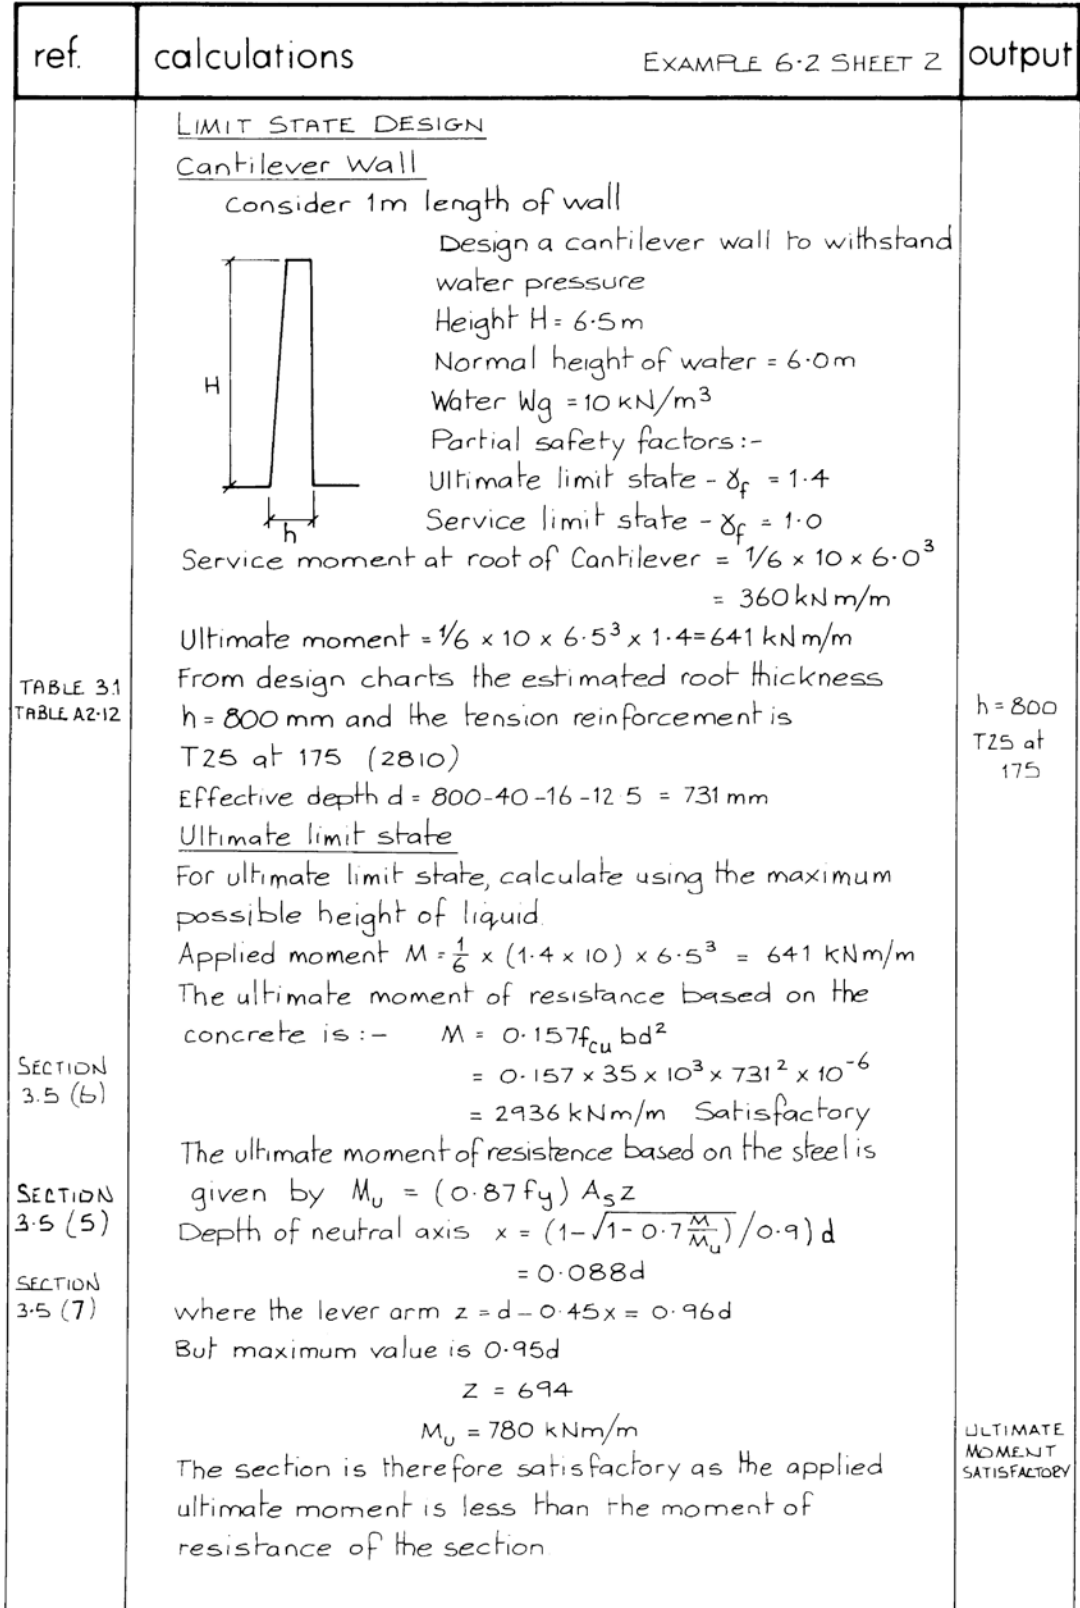 ref.
calculations
EXAMPLE 6·2 SHEET 2
output
LIMIT STATE DESIGN
Cantilever Wall
Consider 1m length of wall
Design a cantilever wall to withstand
water pressure
Height H = 6·5m
Normal height of water = 6·0m
Water Wg = 10 kN/m³
Partial safety factors:-
Ultimate limit state - γf = 1·4
Service limit state - γf = 1·0
H
h
Service moment at root of Cantilever = 1/6 × 10 × 6·0³
= 360 kN m/m
Ultimate moment = 1/6 × 10 × 6·5³ × 1·4 = 641 kN m/m
TABLE 3.1
TABLE A2·12
From design charts the estimated root thickness
h = 800 mm and the tension reinforcement is
T25 at 175 (2810)
h = 800
T25 at
175
Effective depth d = 800-40-16-12 5 = 731 mm
Ultimate limit state
For ultimate limit state, calculate using the maximum
possible height of liquid.
Applied moment M = 1/6 × (1·4 × 10) × 6·5³ = 641 kNm/m
The ultimate moment of resistance based on the
concrete is :- M = 0·157fcu bd²
SECTION
3.5 (6)
= 0·157 × 35 × 10³ × 731² × 10⁻⁶
= 2936 kNm/m Satisfactory
The ultimate moment of resistence based on the steel is
SECTION
3·5 (5)
given by Mu = (0·87 fy) As z
Depth of neutral axis x = (1-√(1-0·7 M/Mu)/0·9) d
= 0·088d
SECTION
3·5 (7)
where the lever arm z = d - 0·45x = 0·96d
But maximum value is 0·95d
Z = 694
Mu = 780 kNm/m
ULTIMATE
MOMENT
SATISFACTORY
The section is therefore satisfactory as the applied
ultimate moment is less than the moment of
resistance of the section